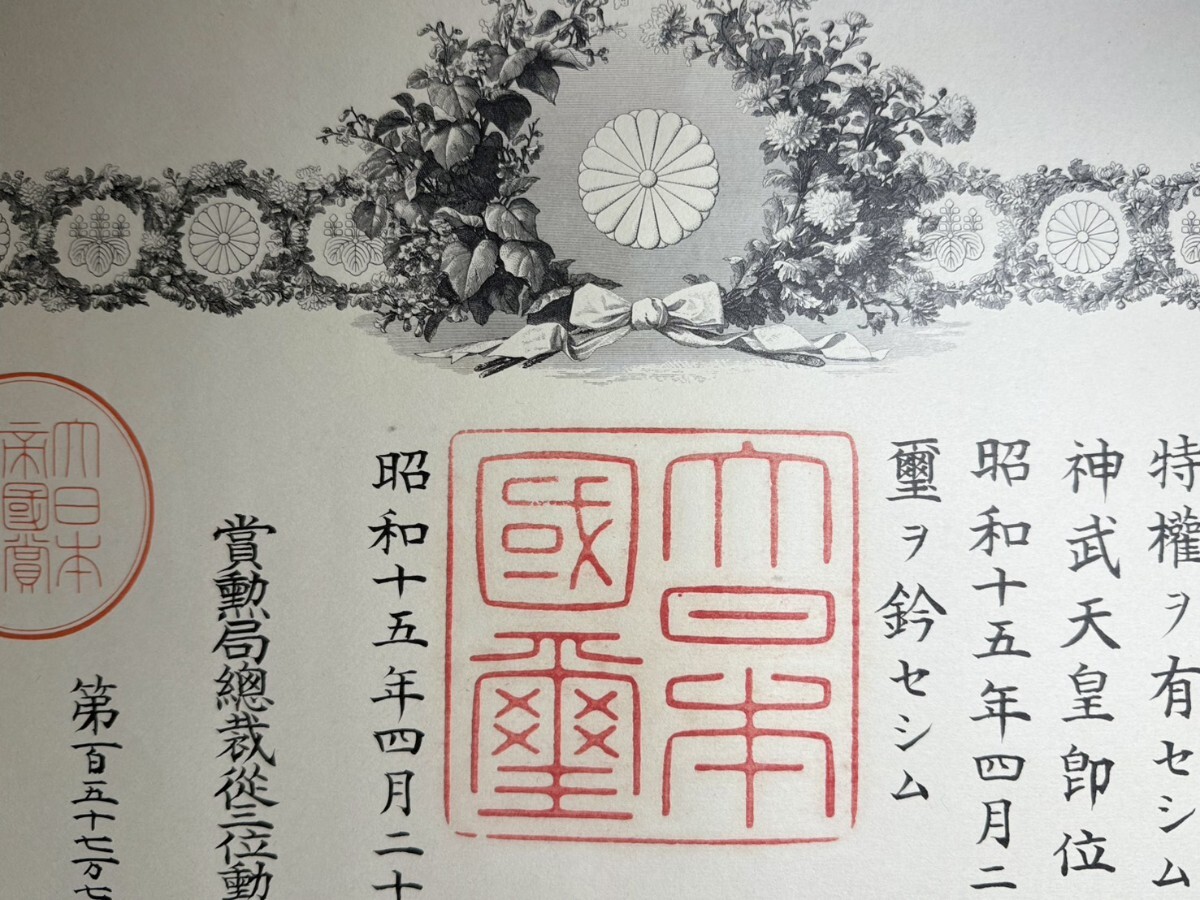 特權ヲ有セシム
神武天皇卽位
昭和十五年四月二
璽ヲ鈐セシム
大日本
國璽
昭和十五年四月二十
賞勲局總裁從三位勳
第百五十七万七
大日本
帝國賞